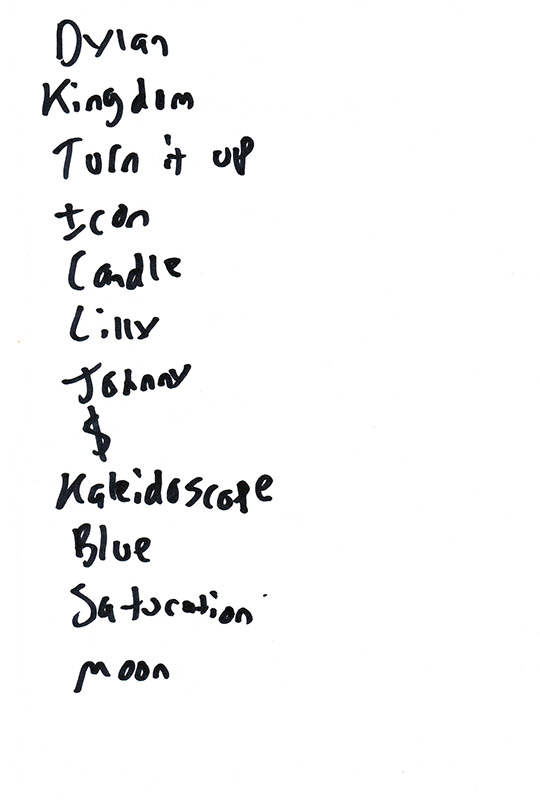 Dylan
Kingdom
Turn it up
Icon
Candle
Lilly
Johnny
$
Kaleidoscope
Blue
Saturation
moon